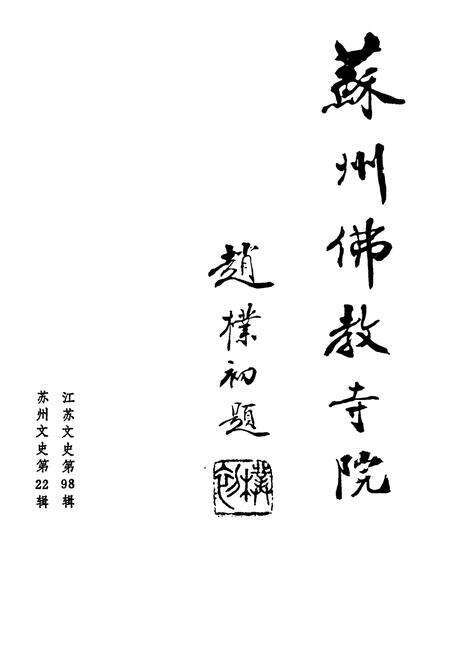 蘇州佛教寺院
趙樸初題
樸初
江苏文史第98辑
苏州文史第22辑